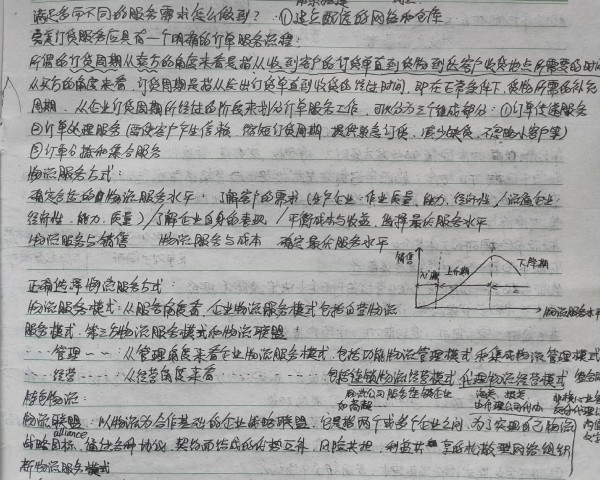 满足各种不同的服务需求怎么做到? ①建立配送的网络和仓库
完美订货服务应具有一个明确的订单服务流程:
所谓的订货周期从卖方的角度来看是指从收到客户的订货单直到货物到达客户收货地点所需要的时间
从买方的角度来看,订货周期是指从发出订货单直到收货的经过时间,即在正常条件下,货物所需的补充
周期. 从企业订货周期所经过的阶段来划分订单服务工作,可以分为三个组成部分:①订单传递服务
②订单处理服务(要使客户产生信赖 缩短订货周期 提供紧急订货,减少缺货,不忽略小客户等)
③订单分拣和集合服务
物流服务方式:
确定合适的物流服务水平: 了解客户的需求(生产企业:作业质量、能力、经济性/流通企业:
经济性、能力、质量)/了解企业自身的表现/平衡成本与收益,选择最优服务水平
物流服务与销售 物流服务与成本 确定最优服务水平
销售 入门期 上升期 下降期 物流服务水平
正确选择物流服务方式:
物流服务模式:从服务角度看,企业物流服务模式包括自营物流
服务模式、第三方物流服务模式和物流联盟
---- 管理 -- --:从管理角度来看企业物流服务模式,包括功能物流管理模式和集成物流管理模式
---- 经营 -- -- 从经营角度来看 包括连锁物流经营模式 代理物流经营模式
综合物流: 物流公司服务连锁企业
物流联盟:以物流为合作基础的企业战略联盟,它是指两个或多个企业之间,为了实现自己物流
alliance
战略目标,通过各种协议、契约而结成的优势互补、风险共担、利益共享的松散型网络组织
新物流服务模式